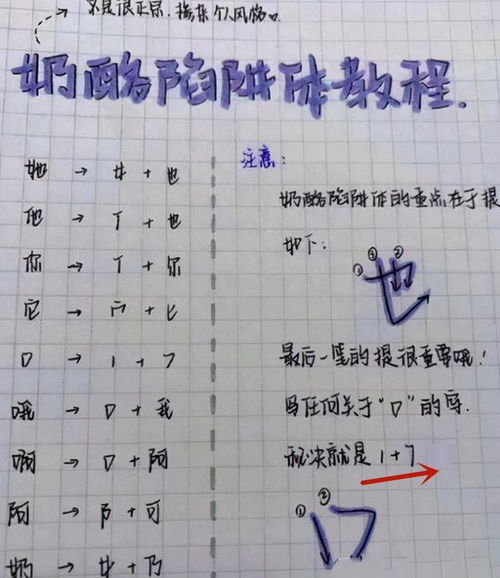 不是很正宗，掺杂个人风格。
奶酪陷阱体教程.
她 → 女 + 也
他 → 亻 + 也
你 → 亻 + 尔
它 → 宀 + 匕
口 → 1 + 7
哦 → 口 + 我
啊 → 口 + 阿
阿 → 阝 + 可
奶 → 女 + 乃
注意：
奶酪陷阱体的重点在于提
如下：
① ③ ② 也
最后一笔的提很重要哦！
写任何关于“口”的字.
秘诀就是 1 + 7
① ② 口